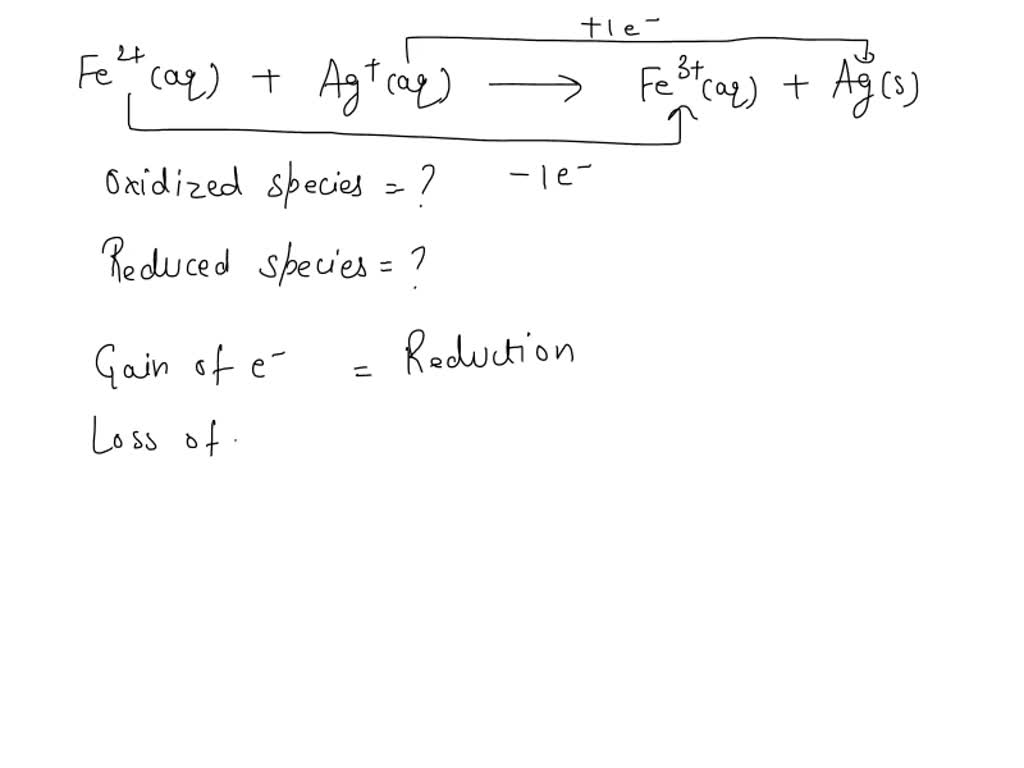 +1e⁻
Fe²⁺(aq) + Ag⁺(aq) ⟶ Fe³⁺(aq) + Ag(s)
Oxidized species = ? -1e⁻
Reduced species = ?
Gain of e⁻ = Reduction
Loss of